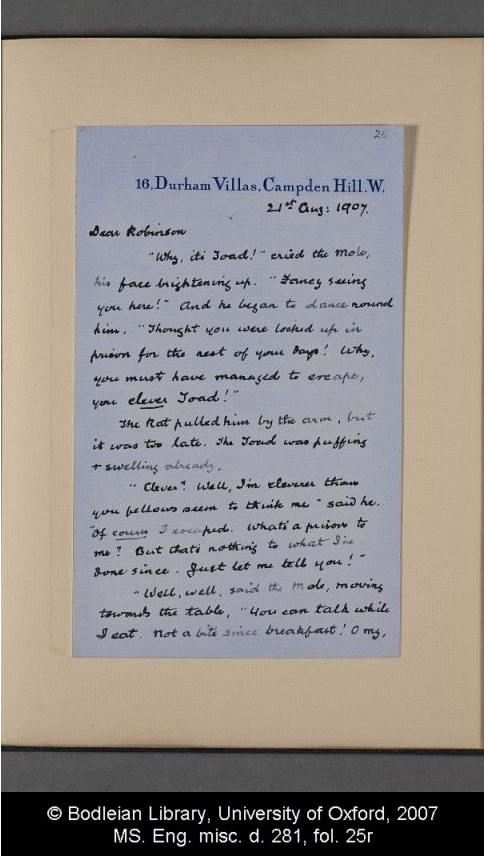 25
16, Durham Villas. Campden Hill. W.
21st Aug: 1907.
Dear Robinson
"Why, it's Toad!" cried the Mole,
his face brightening up. "Fancy seeing
you here!" And he began to dance round
him. "Thought you were locked up in
prison for the rest of your days! Why,
you must have managed to escape,
you clever Toad!"
The Rat pulled him by the arm, but
it was too late. The Toad was puffing
+ swelling already.
"Clever? Well, I'm cleverer than
you fellows seem to think me" said he.
"Of course I escaped. What's a prison to
me? But that's nothing to what I've
done since. Just let me tell you!"
"Well, well, said the Mole, moving
towards the table, "You can talk while
I eat. Not a bite since breakfast! O my,
© Bodleian Library, University of Oxford, 2007
MS. Eng. misc. d. 281, fol. 25r